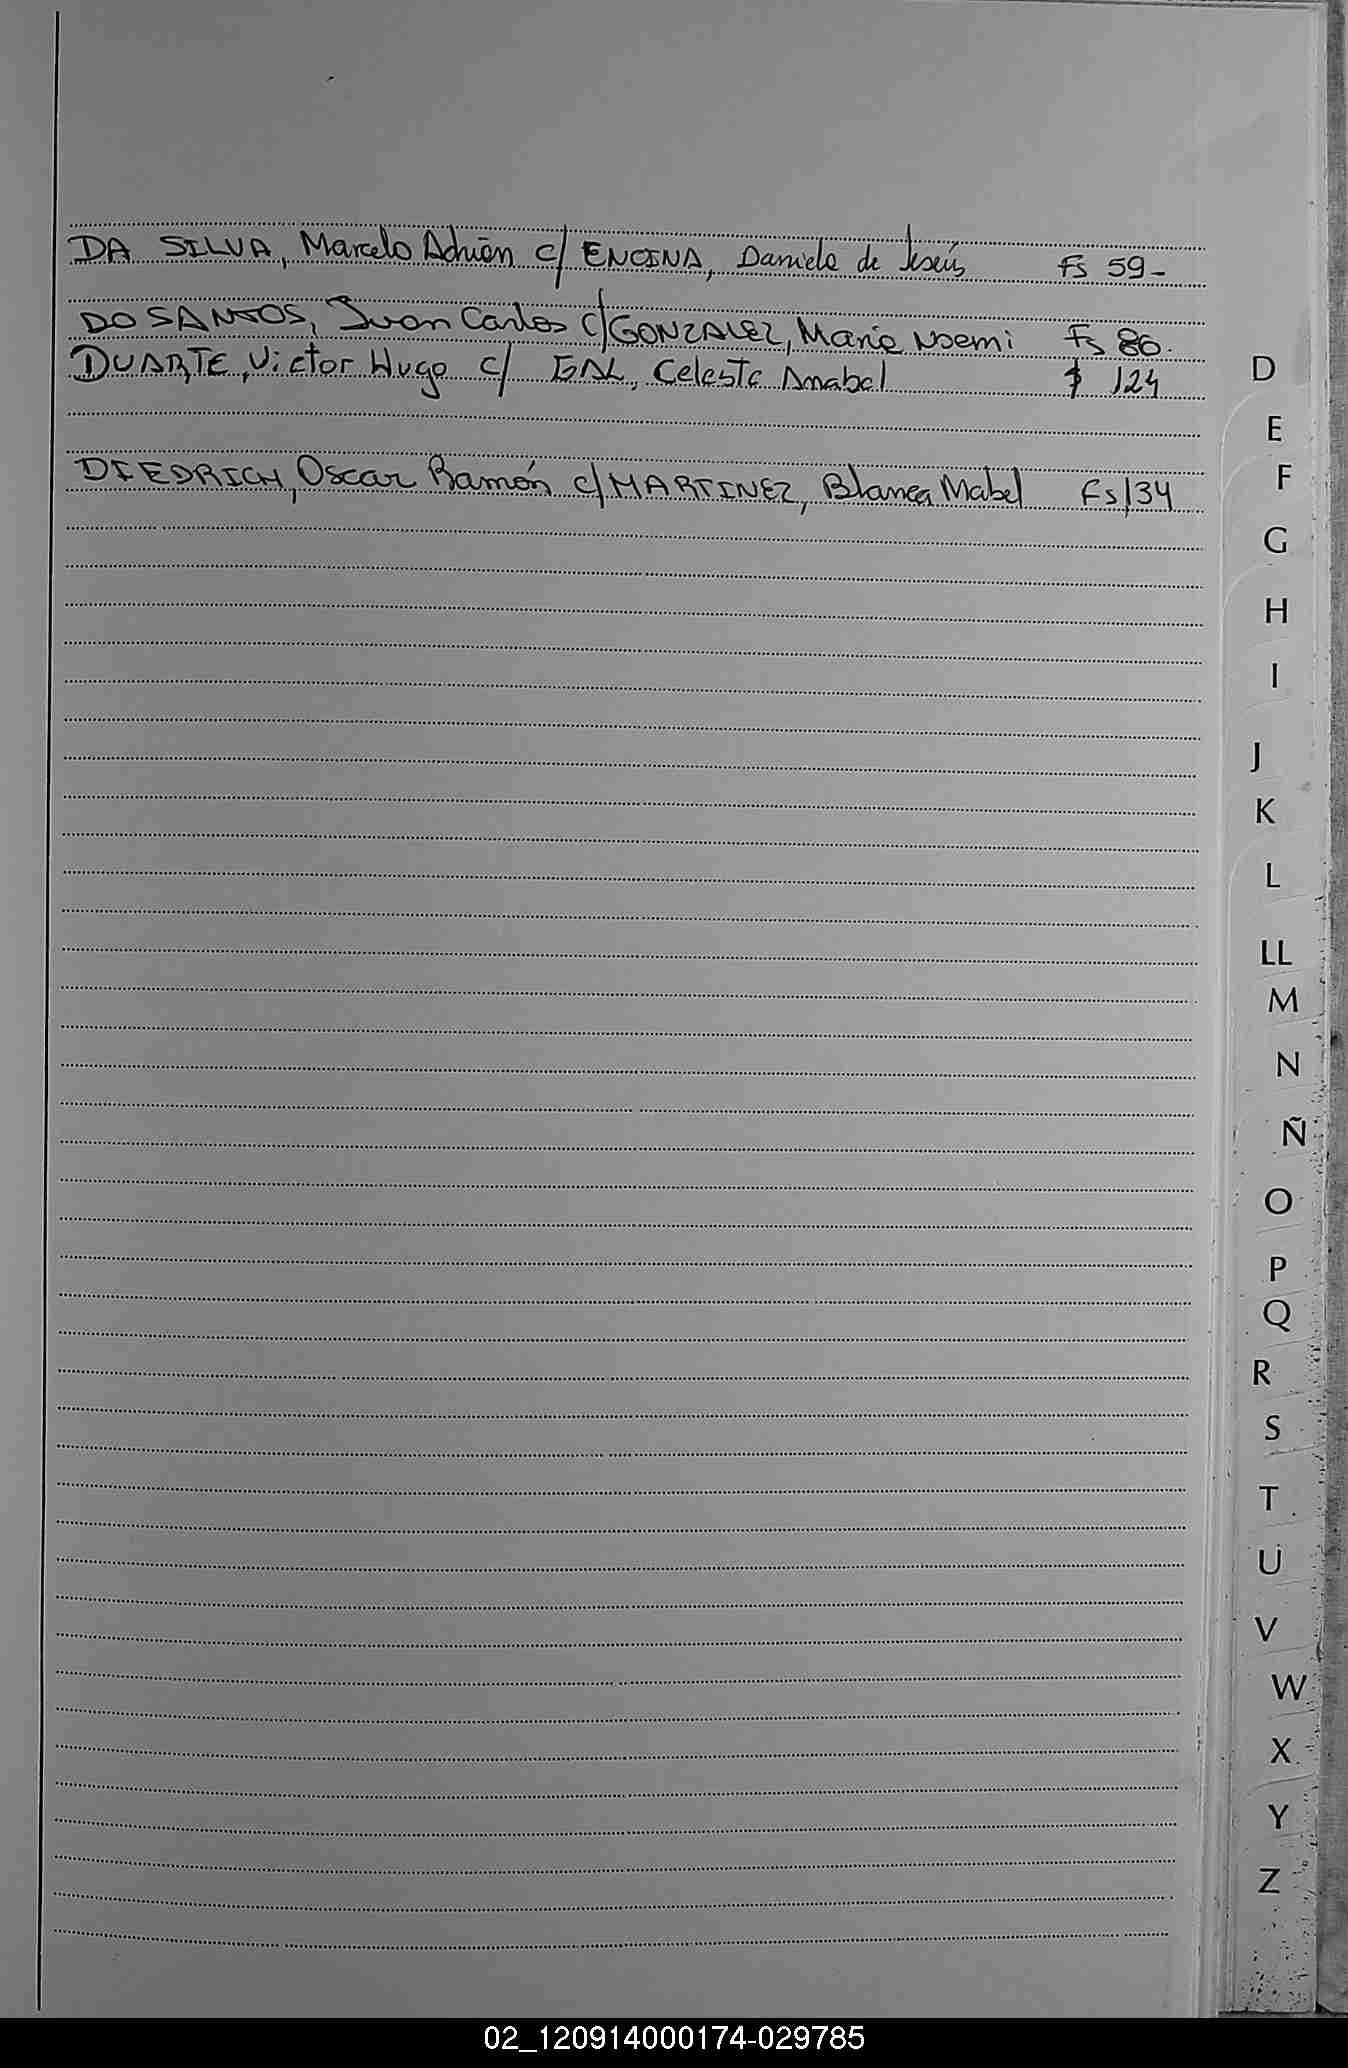 DA SILVA, Marcelo Adrián c/ ENCINA, Daniela de Jesús Fs 59-
DO SANTOS, Juan Carlos c/ GONZALEZ, Maria Noemi Fs 86.
DUARTE, Victor Hugo c/ GAL, Celeste Anabel 124
DIEDRICH, Oscar Ramón c/ MARTINEZ, Blanca Mabel Fs 134
D
E
F
G
H
I
J
K
L
LL
M
N
Ñ
O
P
Q
R
S
T
U
V
W
X
Y
Z
02_120914000174-029785